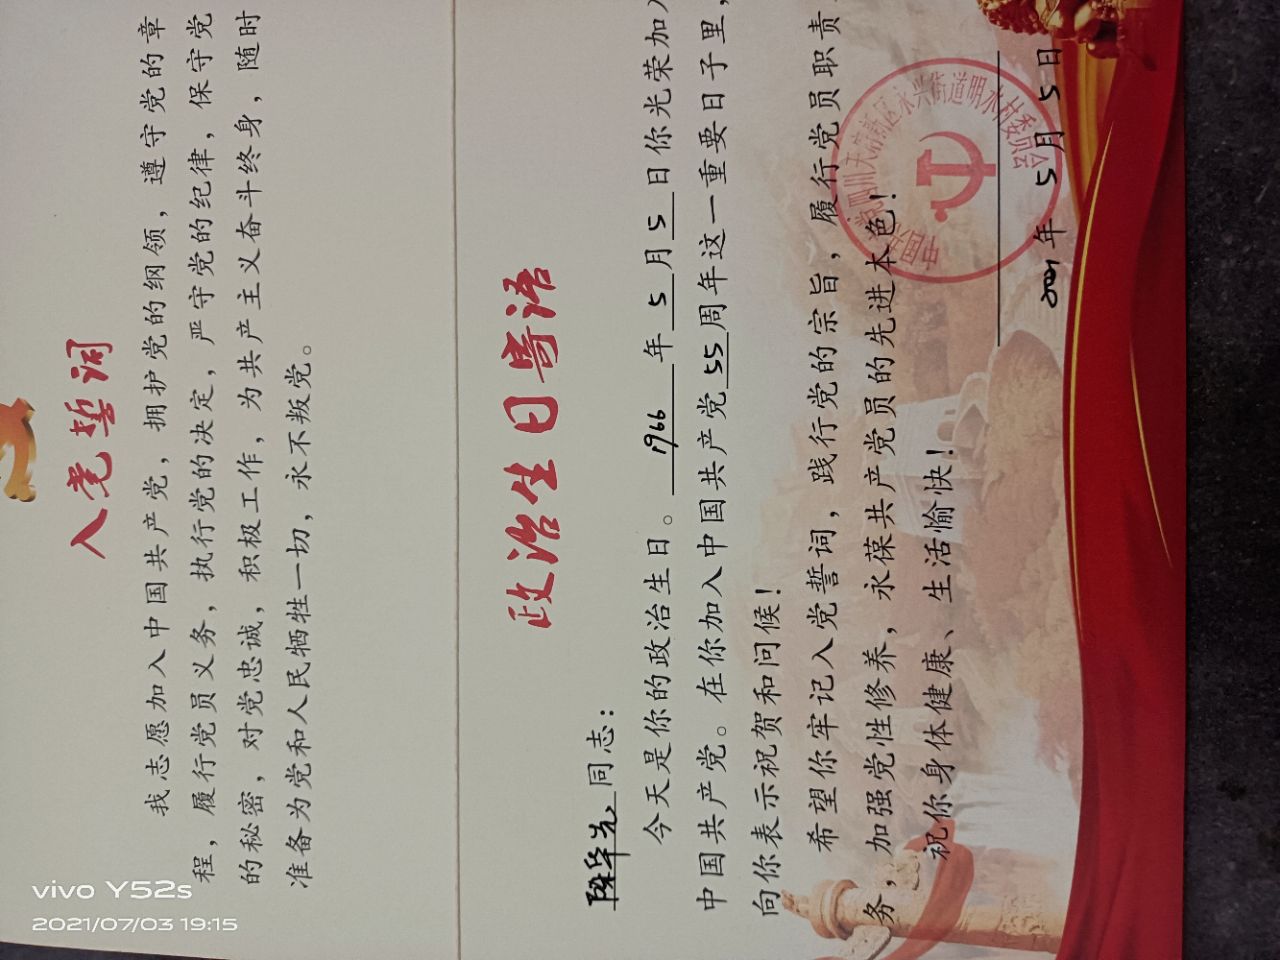 入党誓词
我志愿加入中国共产党，拥护党的纲领，遵守党的章
程，履行党员义务，执行党的决定，严守党的纪律，保守党
的秘密，对党忠诚，积极工作，为共产主义奋斗终身，随时
准备为党和人民牺牲一切，永不叛党。
政治生日寄语
陈华先同志：
今天是你的政治生日。1966年5月5日你光荣加入
中国共产党。在你加入中国共产党55周年这一重要日子里，
向你表示祝贺和问候！
希望你牢记入党誓词，践行党的宗旨，履行党员职责
务，加强党性修养，永葆共产党员的先进本色！
祝你身体健康、生活愉快！
中国共产党四川天府新区永兴街道明水村委员会
2021年5月5日
vivo Y52s
2021/07/03 19:15